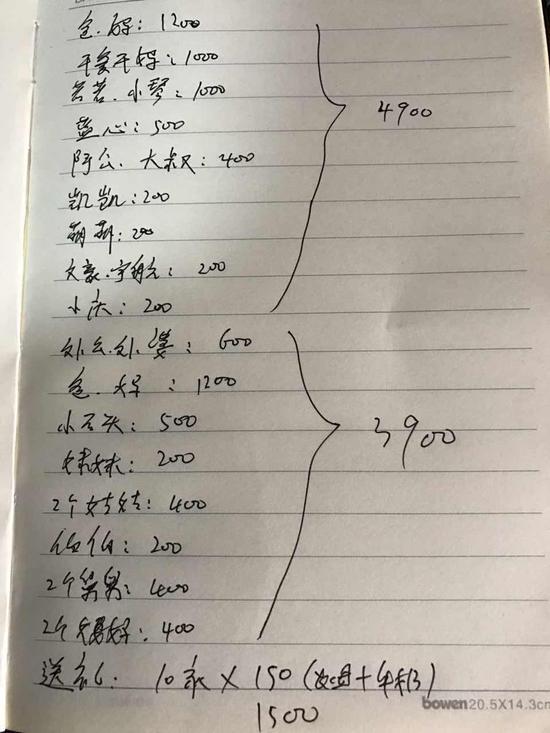 爸.妈：1200
干爹干妈：1000
苦苦.小琴：1000
蓝心：500
阿公.大叔：400
凯凯：200
萌萌：200
文豪.宇航：200
小庆：200
4900
外公.外婆：600
爸.妈：1200
小石头：500
妹妹：200
2个姑姑：400
伯伯：200
2个舅舅：400
2个舅妈：400
3900
送礼：10家×150（烟+年糕）
1500
bowen 20.5X14.3cm